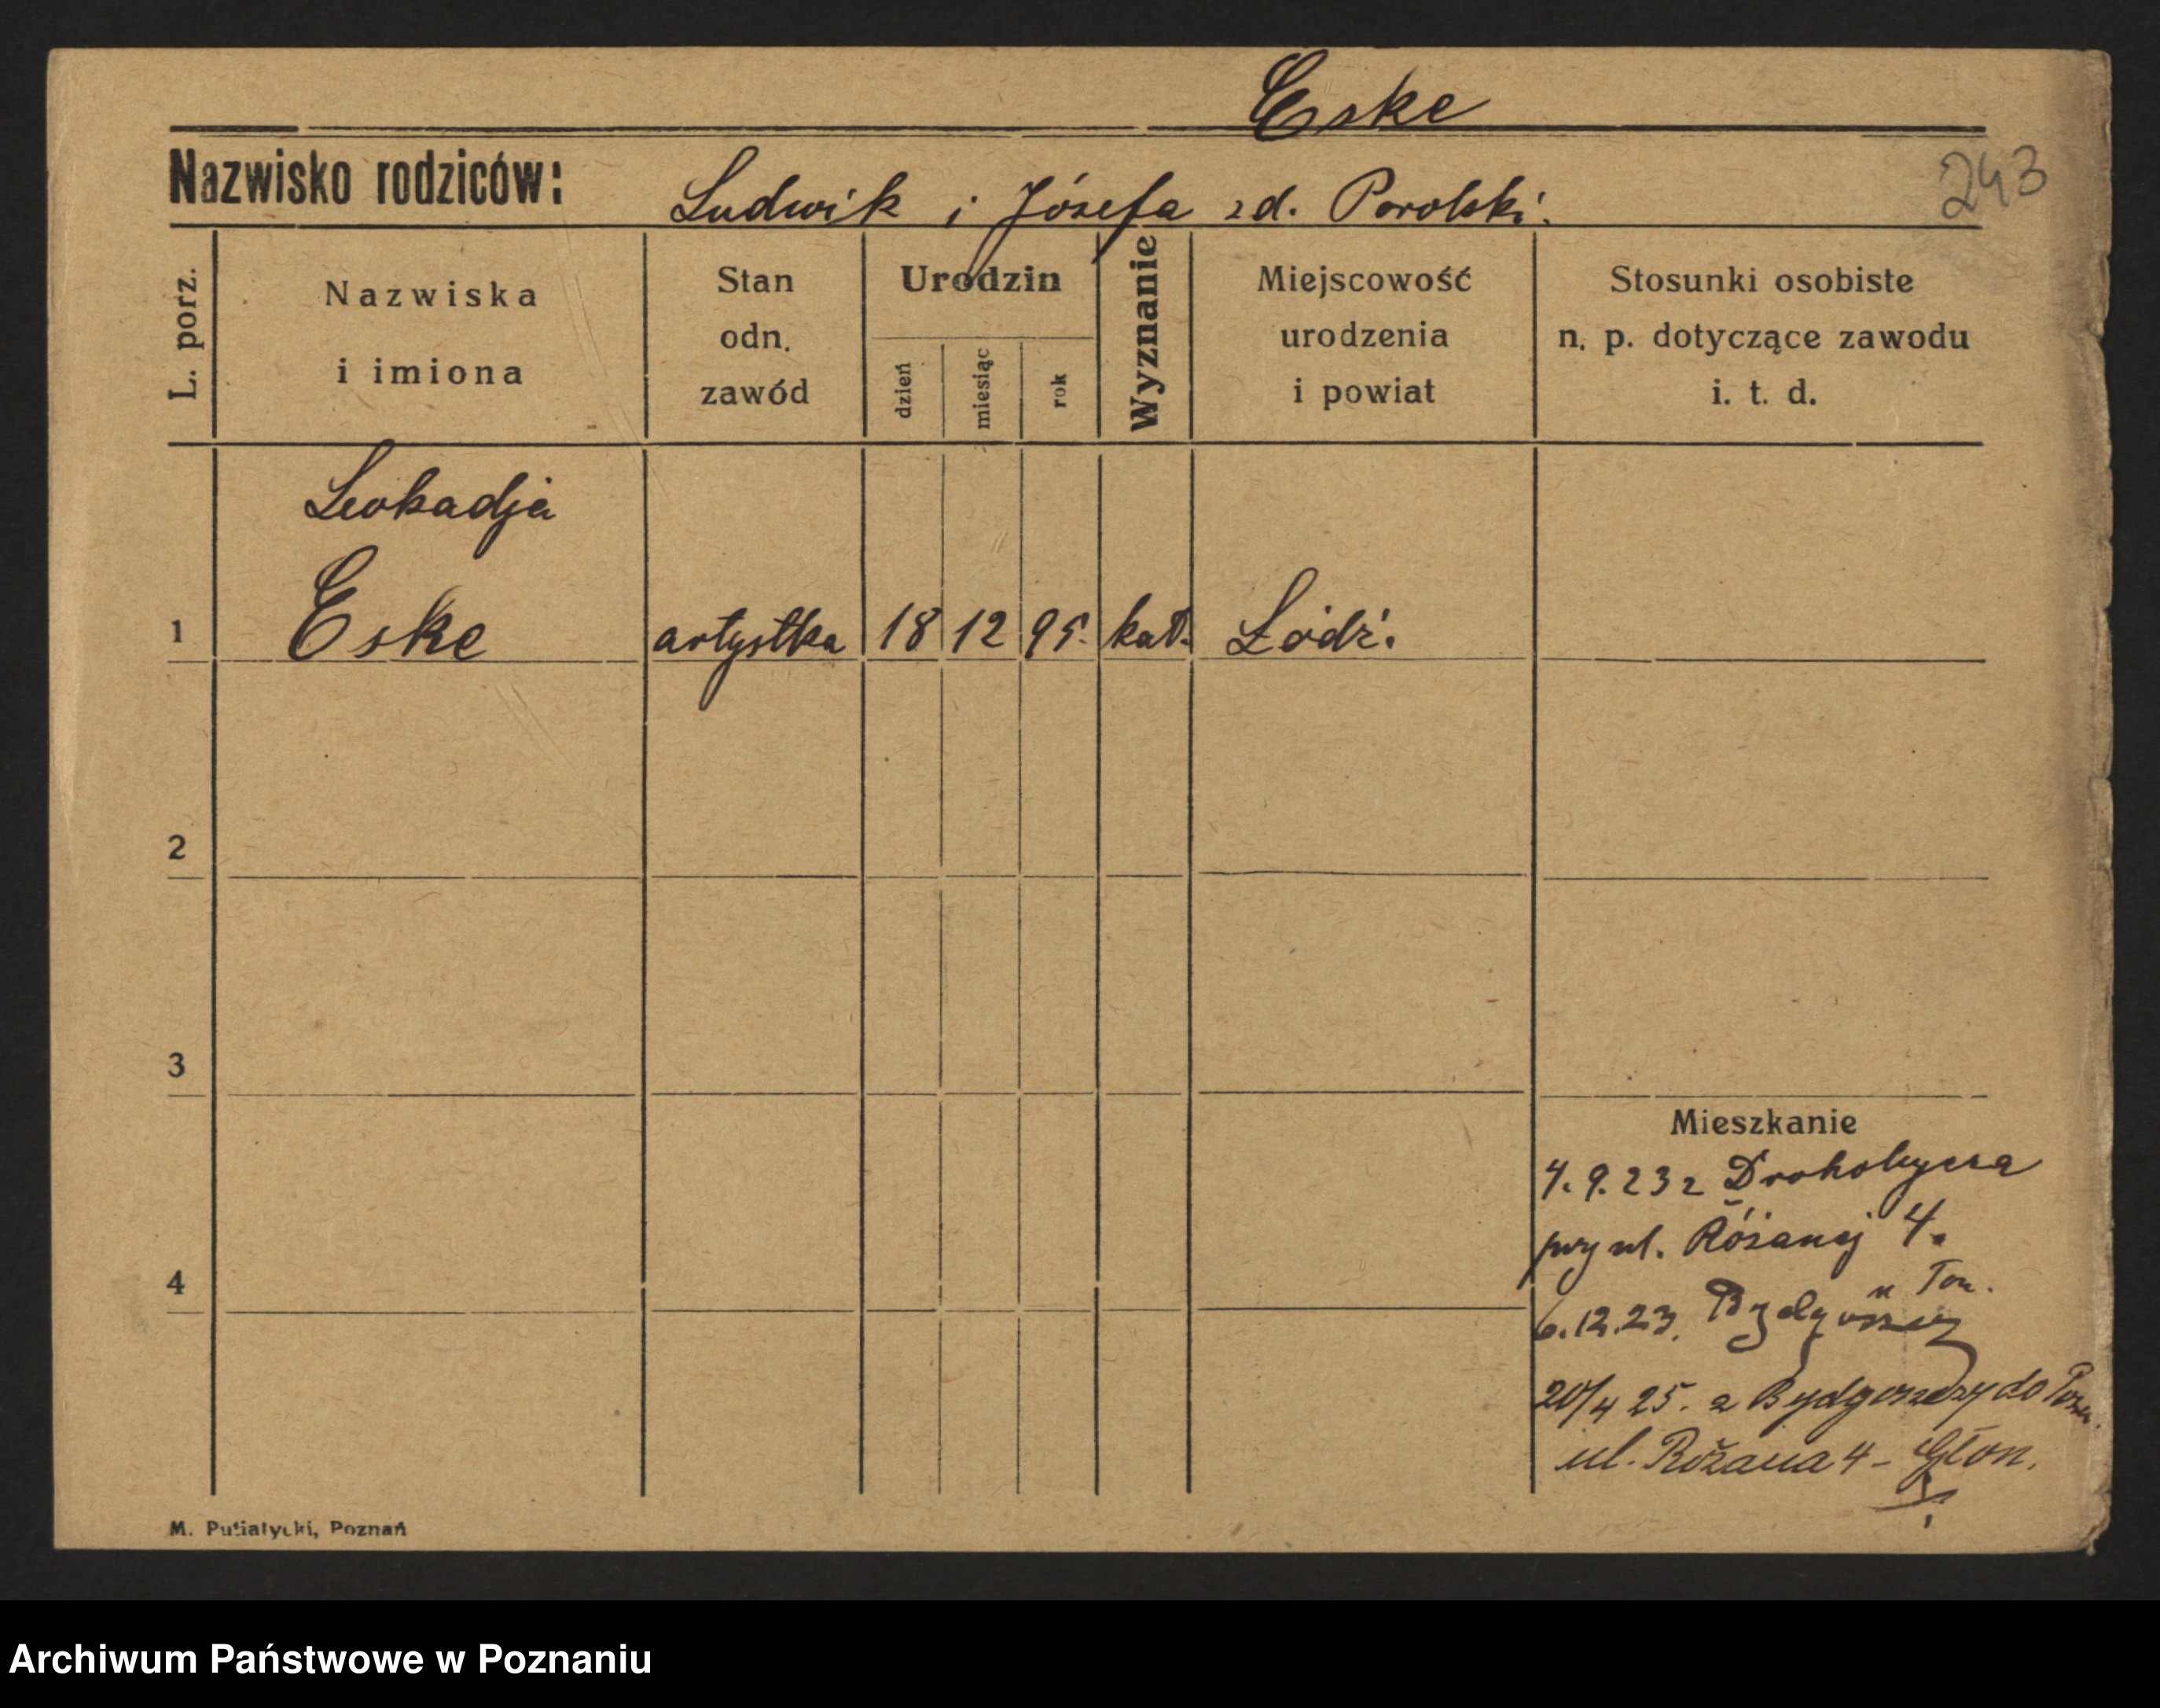 Eske
Nazwisko rodziców: Ludwik i Józefa zd. Parolski.
243
L. porz.
Nazwiska
i imiona
Stan
odn.
zawód
Urodzin
dzień
miesiąc
rok
Wyznanie
Miejscowość
urodzenia
i powiat
Stosunki osobiste
n. p. dotyczące zawodu
i. t. d.
Leokadja
1 Eske artystka 18 12 95. kat. Łódź.
2
3
4
Mieszkanie
4.9.23 z Drohobycza
przy ul. Różanej 4.
6.12.23. Bydgoszcz
20/4 25. z Bydgoszczy do Pozn.
ul. Różana 4 -
M. Putiatycki, Poznań
Archiwum Państwowe w Poznaniu